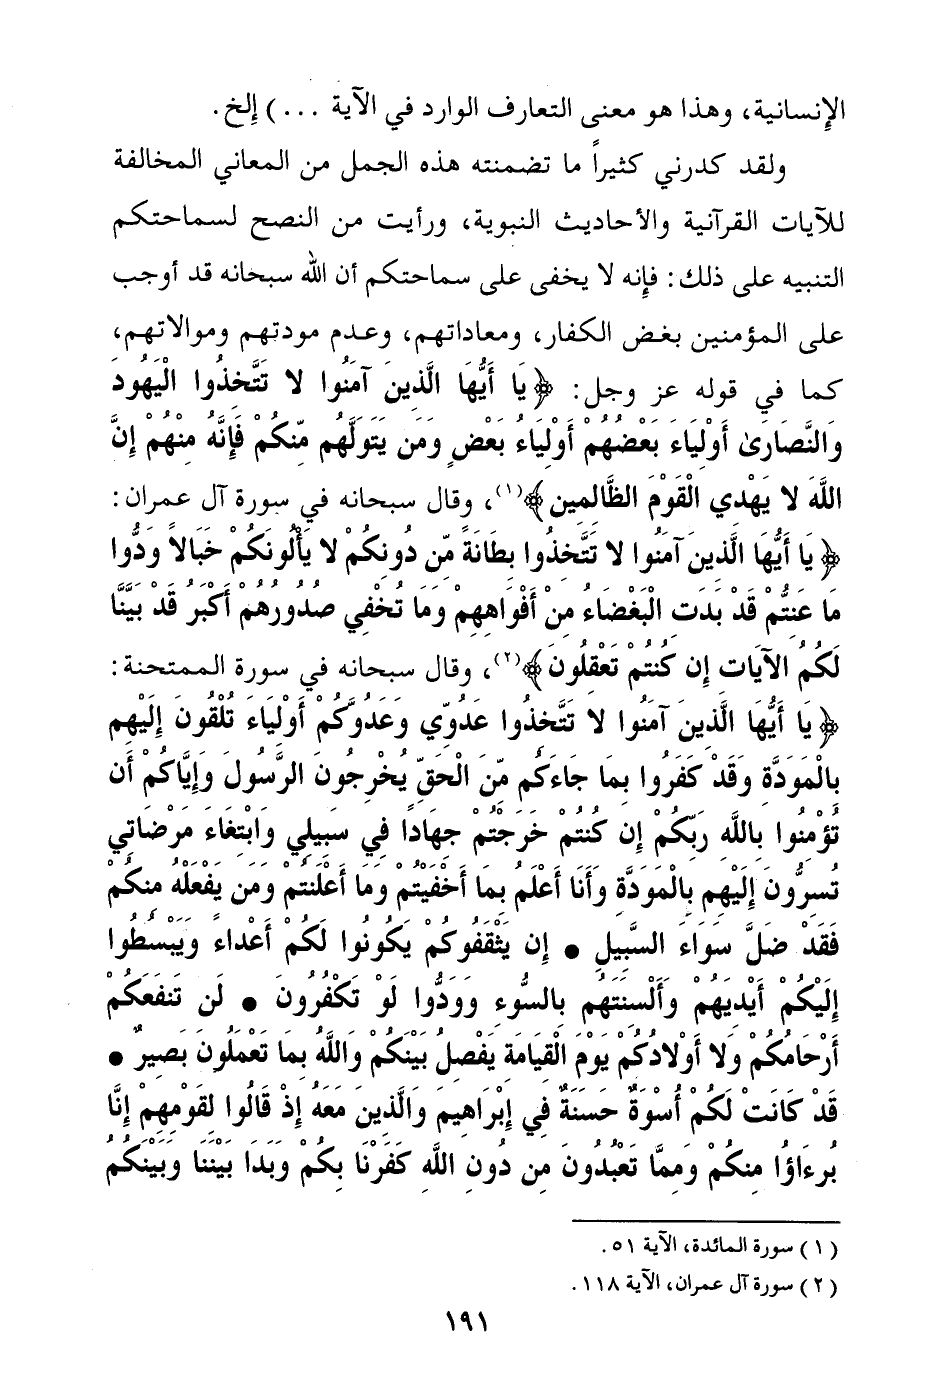 الإنسانية، وهذا هو معنى التعارف الوارد في الآية ...) إلخ.
ولقد كدرني كثيراً ما تضمنته هذه الجمل من المعاني المخالفة
للآيات القرآنية والأحاديث النبوية، ورأيت من النصح لسماحتكم
التنبيه على ذلك: فإنه لا يخفى على سماحتكم أن الله سبحانه قد أوجب
على المؤمنين بغض الكفار، ومعاداتهم، وعدم مودتهم وموالاتهم،
كما في قوله عز وجل: ﴿يَا أَيُّهَا الَّذِينَ آمَنُوا لا تَتَّخِذُوا الْيَهُودَ
وَالنَّصَارَىٰ أَوْلِيَاءَ بَعْضُهُمْ أَوْلِيَاءُ بَعْضٍ وَمَن يَتَوَلَّهُم مِّنكُمْ فَإِنَّهُ مِنْهُمْ إِنَّ
اللَّهَ لا يَهْدِي الْقَوْمَ الظَّالِمِين﴾(١)، وقال سبحانه في سورة آل عمران:
﴿يَا أَيُّهَا الَّذِينَ آمَنُوا لا تَتَّخِذُوا بِطَانَةً مِّن دُونِكُمْ لا يَأْلُونَكُمْ خَبَالاً وَدُّوا
مَا عَنِتُّمْ قَدْ بَدَتِ الْبَغْضَاءُ مِنْ أَفْوَاهِهِمْ وَمَا تُخْفِي صُدُورُهُمْ أَكْبَرُ قَدْ بَيَّنَّا
لَكُمُ الآيَاتِ إِن كُنتُمْ تَعْقِلُونَ﴾(٢)، وقال سبحانه في سورة الممتحنة:
﴿يَا أَيُّهَا الَّذِينَ آمَنُوا لا تَتَّخِذُوا عَدُوِّي وَعَدُوَّكُمْ أَوْلِيَاءَ تُلْقُونَ إِلَيْهِم
بِالْمَوَدَّةِ وَقَدْ كَفَرُوا بِمَا جَاءَكُم مِّنَ الْحَقِّ يُخْرِجُونَ الرَّسُولَ وَإِيَّاكُمْ أَن
تُؤْمِنُوا بِاللَّهِ رَبِّكُمْ إِن كُنتُمْ خَرَجْتُمْ جِهَادًا فِي سَبِيلِي وَابْتِغَاءَ مَرْضَاتِي
تُسِرُّونَ إِلَيْهِم بِالْمَوَدَّةِ وَأَنَا أَعْلَمُ بِمَا أَخْفَيْتُمْ وَمَا أَعْلَنتُمْ وَمَن يَفْعَلْهُ مِنكُمْ
فَقَدْ ضَلَّ سَوَاءَ السَّبِيلِ • إِن يَثْقَفُوكُمْ يَكُونُوا لَكُمْ أَعْدَاءً وَيَبْسُطُوا
إِلَيْكُمْ أَيْدِيَهُمْ وَأَلْسِنَتَهُم بِالسُّوءِ وَوَدُّوا لَوْ تَكْفُرُونَ • لَن تَنفَعَكُمْ
أَرْحَامُكُمْ وَلا أَوْلادُكُمْ يَوْمَ الْقِيَامَةِ يَفْصِلُ بَيْنَكُمْ وَاللَّهُ بِمَا تَعْمَلُونَ بَصِيرٌ •
قَدْ كَانَتْ لَكُمْ أُسْوَةٌ حَسَنَةٌ فِي إِبْرَاهِيمَ وَالَّذِينَ مَعَهُ إِذْ قَالُوا لِقَوْمِهِمْ إِنَّا
بُرَءَاؤُا مِنكُمْ وَمِمَّا تَعْبُدُونَ مِن دُونِ اللَّهِ كَفَرْنَا بِكُمْ وَبَدَا بَيْنَنَا وَبَيْنَكُمُ
(١) سورة المائدة، الآية ٥١.
(٢) سورة آل عمران، الآية ١١٨.
١٩١